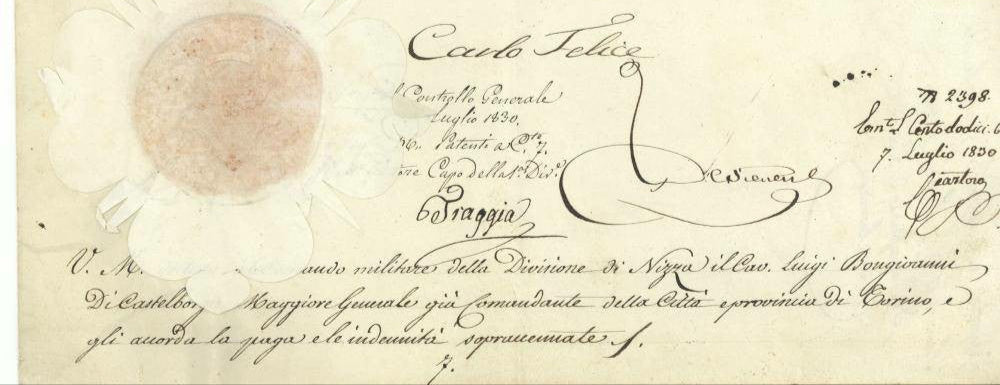 Carlo Felice
Controllo Generale
Luglio 1830.
Patenti a C.to 7.
Capo della 1.a Div.e
Traggia
2398.
Cento dodici.
7. Luglio 1830
V. M. militare della Divisione di Nizza il Cav. Luigi Bongiovanni
Di Castelborg Maggiore Generale già Comandante della Città e provincia di Torino, e
gli accorda la paga e le indennità sopraccennate
7.